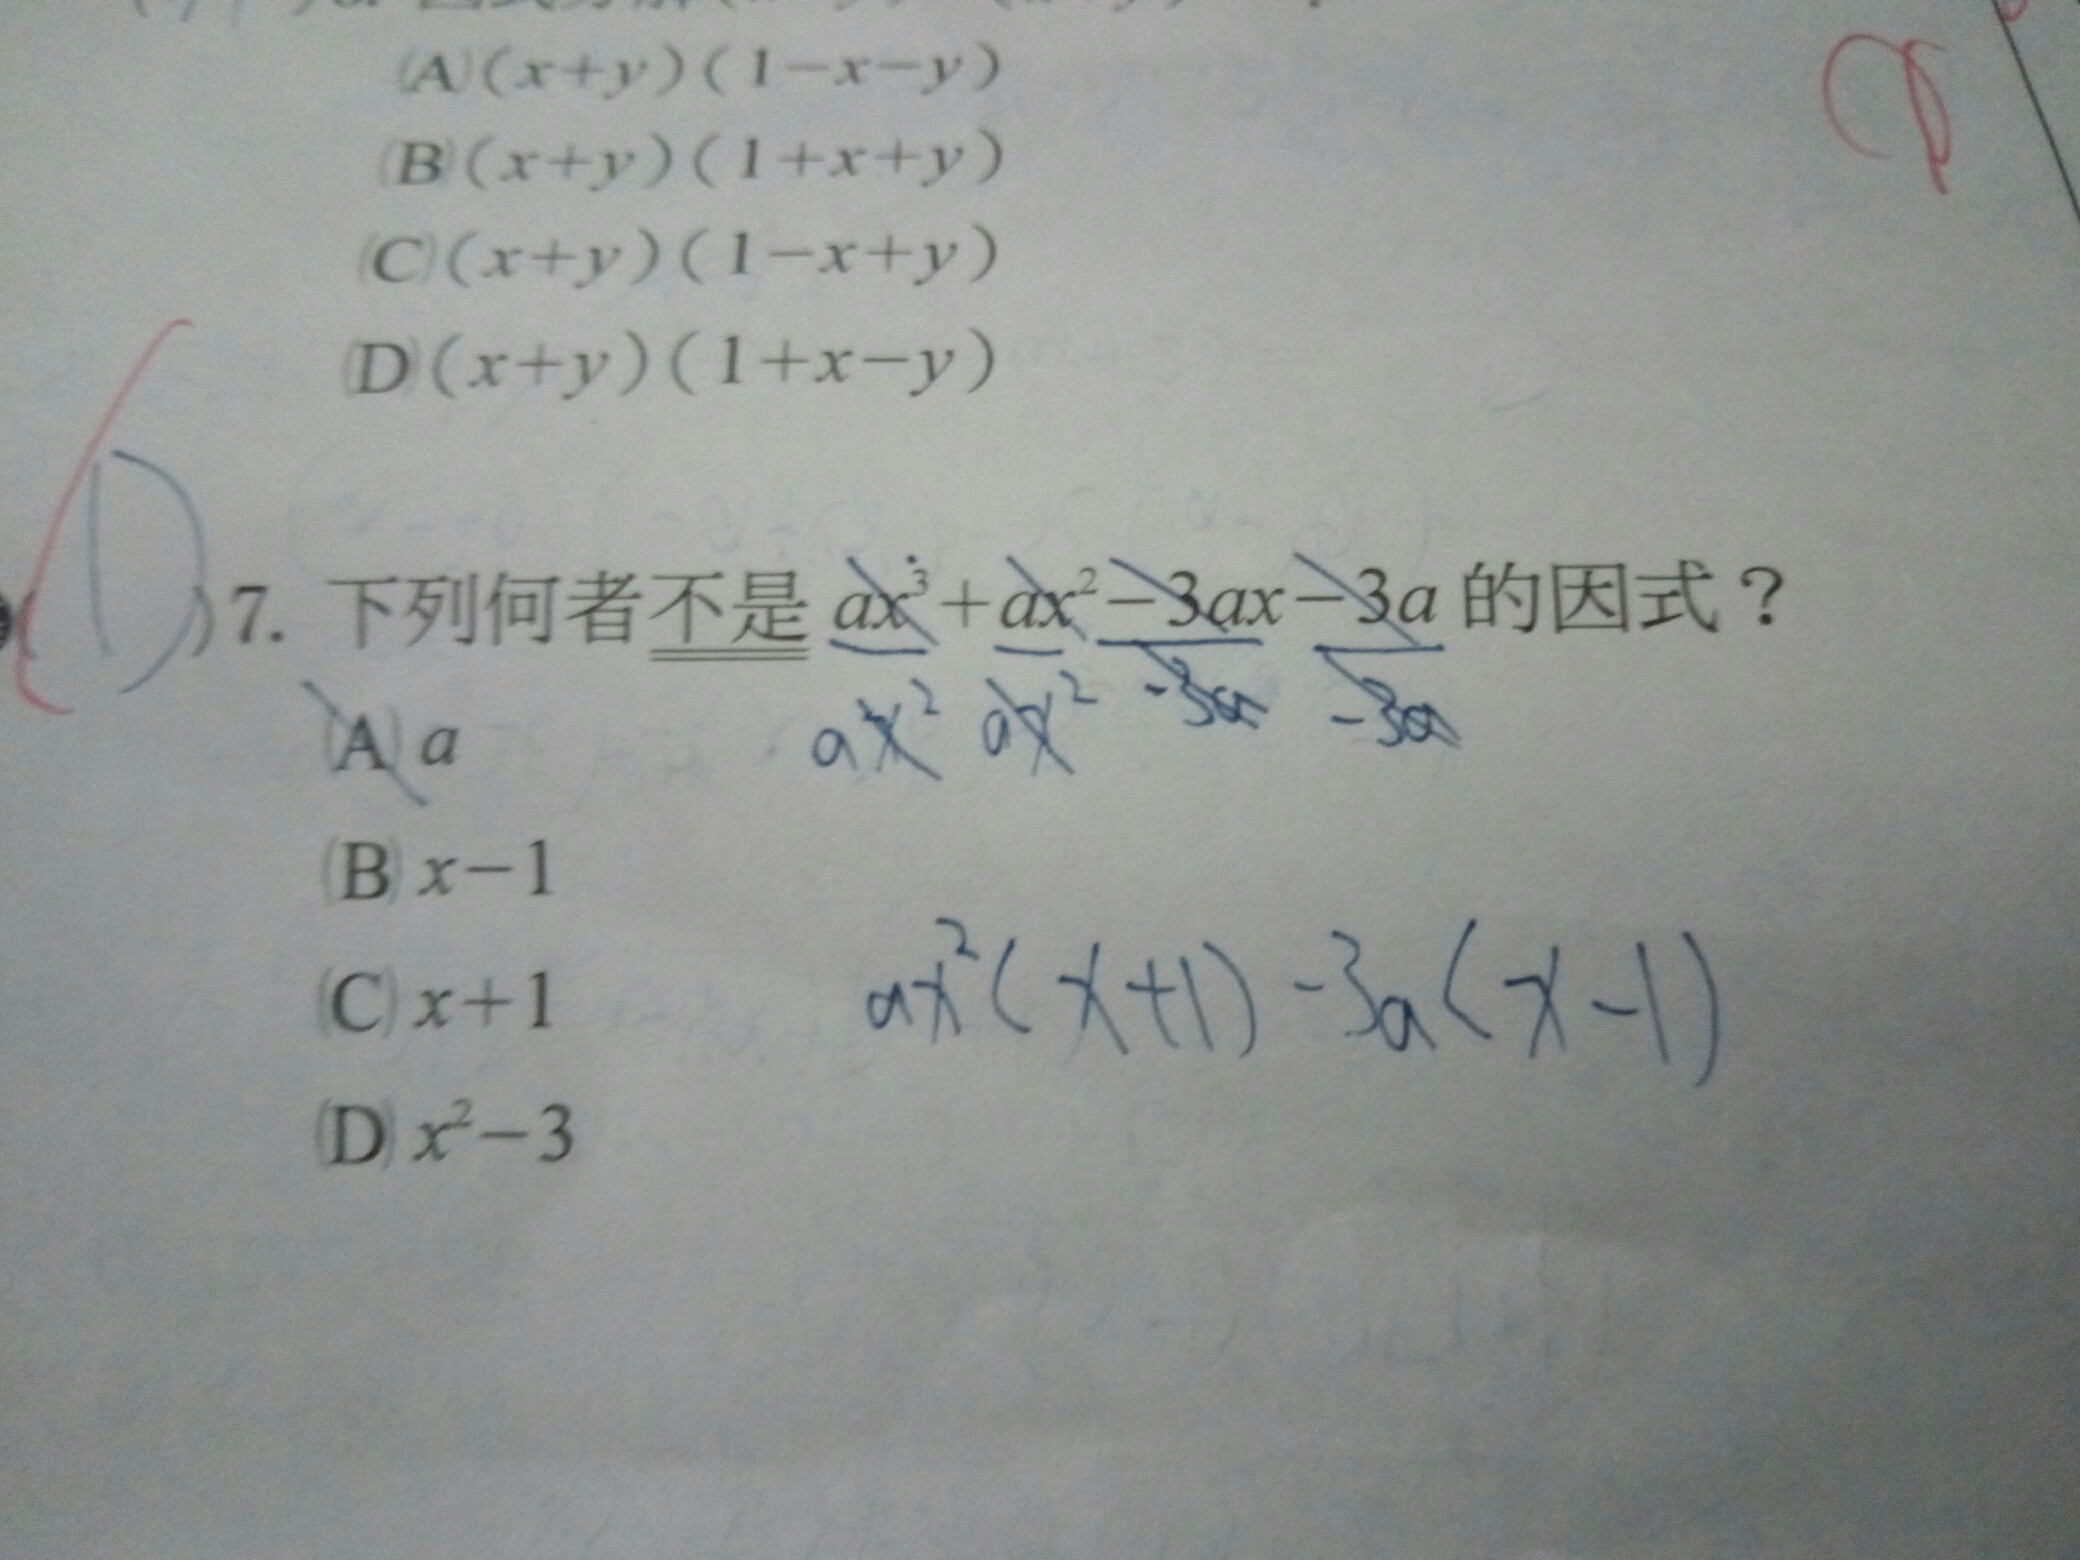 (A)(x+y)(1−x−y)
(B)(x+y)(1+x+y)
(C)(x+y)(1−x+y)
(D)(x+y)(1+x−y)
(D)7. 下列何者不是 ax³+ax²−3ax−3a 的因式？
ax² ax² -3a -3a
(A) a
(B) x−1
(C) x+1
(D) x²−3
ax²(x+1)-3a(x-1)